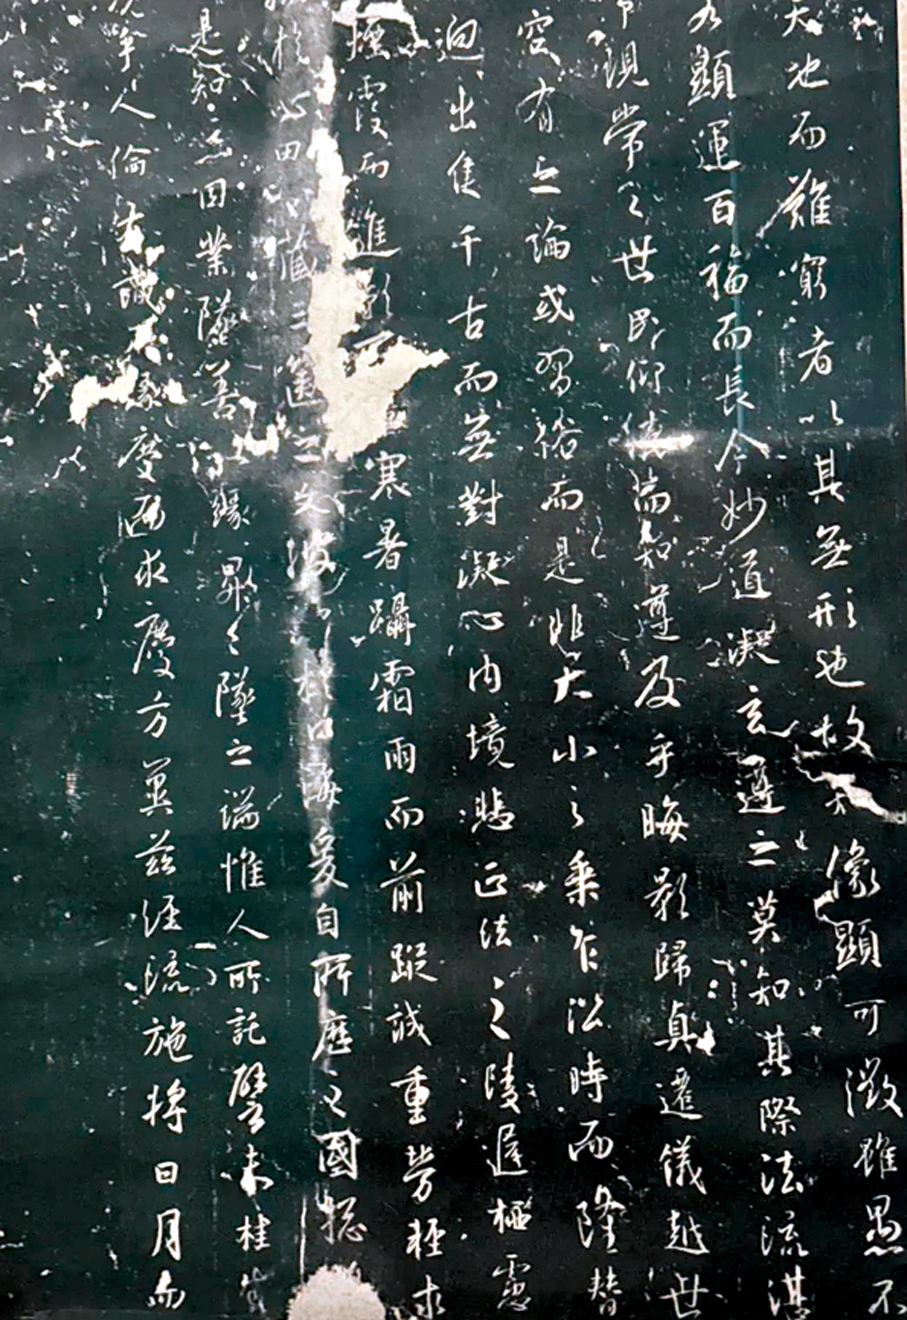 天地而難窮者以其無形也故像顯可徵雖愚不
顯運百福而長今妙道凝玄遵之莫知其際法流湛
現常々世民仰德而知遵及乎晦影歸真遷儀越世
空有之論或習俗而是非大小之乘乍沿時而隆替
迥出隻千古而無對凝心內境悲正法之陵遲栖慮
煙霞而進影百寒暑躡霜雨而前蹤誠重勞輕求
於心田八藏三篋之文波濤於口海爰自所歷之國總
是知惡因業墜善以緣昇々墜之端惟人所託譬夫桂生
況乎人倫有識不緣慶而求慶方冀茲經流施將日月而